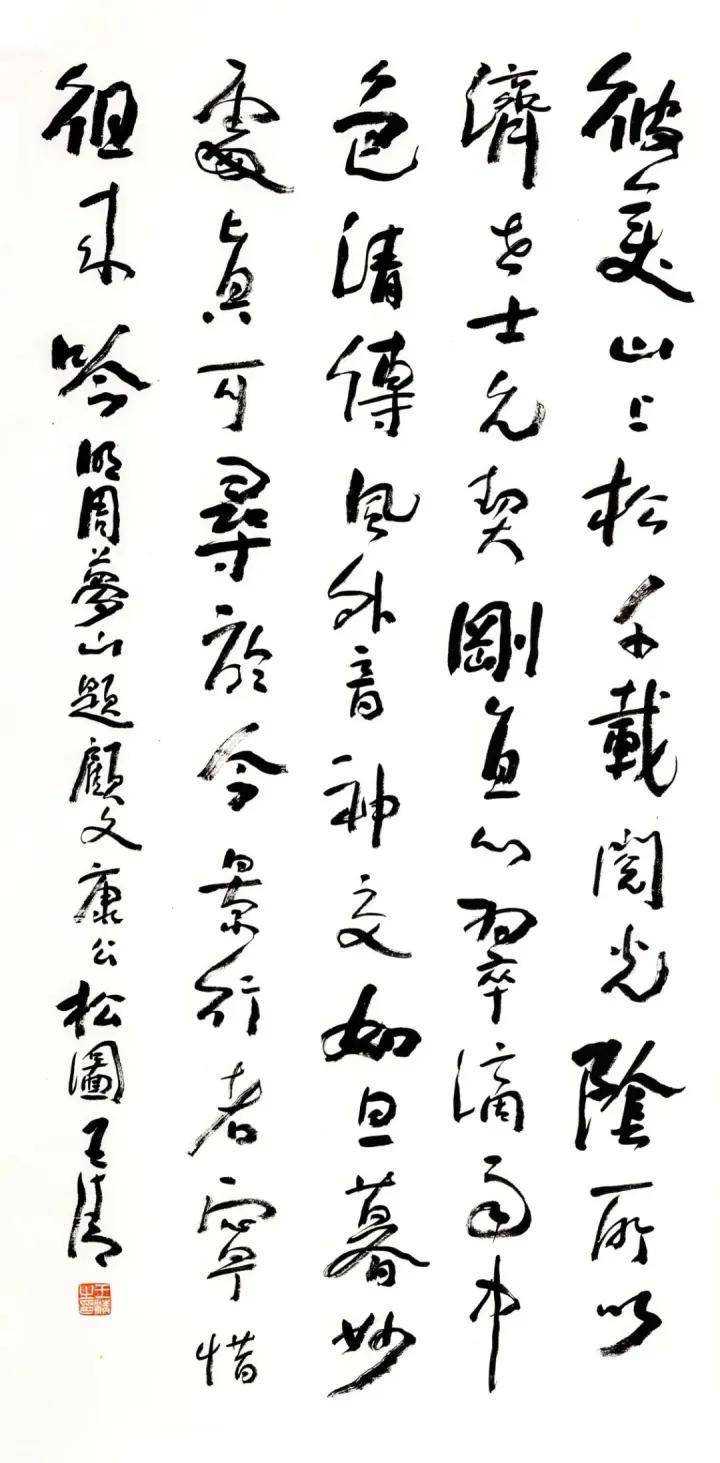 彼美山上松千載閱光陰所以
濟世士允契剛直心翠滴雨中
色清傳風外音神交如旦暮妙
處真可尋於今景行者寧惜
徂來吟明周夢山題顧文康公松圖王清